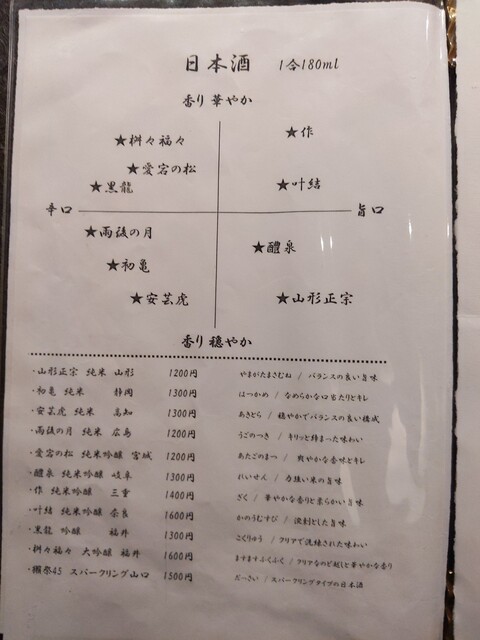 日本酒　1合180ml
香り華やか
★作
★桝々福々
★愛宕の松
★黒龍
★叶結
辛口
旨口
★雨後の月
★醴泉
★初亀
★安芸虎
★山形正宗
香り穏やか
・山形正宗 純米 山形 1200円 やまがたまさむね / バランスの良い旨味
・初亀 純米 静岡 1300円 はつかめ / なめらかな口当たりとキレ
・安芸虎 純米 高知 1300円 あきとら / 穏やかでバランスの良い構成
・雨後の月 純米 広島 1200円 うごのつき / キリッと締まった味わい
・愛宕の松 純米吟醸 宮城 1200円 あたごのまつ / 爽やかな香味とキレ
・醴泉 純米吟醸 岐阜 1300円 れいせん / 力強い米の旨味
・作 純米吟醸 三重 1400円 ざく / 華やかな香りと柔らかい旨味
・叶結 純米吟醸 奈良 1600円 かのうむすび / 溌剌とした旨味
・黒龍 吟醸 福井 1300円 こくりゅう / クリアで洗練された味わい
・桝々福々 大吟醸 福井 1600円 ますますふくふく / クリアなのど越しと華やかな香り
・獺祭45 スパークリング山口 1500円 だっさい / スパークリングタイプの日本酒